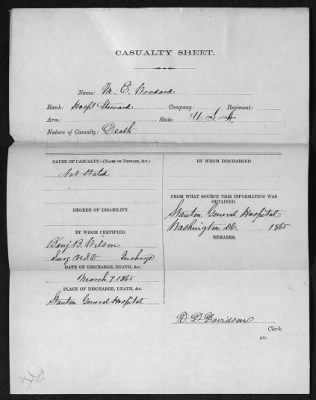 CASUALTY SHEET.
Name: M. E. Woodard
Rank: Hospl Steward Company Regiment:
Arm: State: U S A
Nature of Casualty: Death
CAUSE OF CASUALTY—(NAME OF DISEASE, &c.)
Not Stated
DEGREE OF DISABILITY.
BY WHOM CERTIFIED.
Benj B. Wilson
Surg U.S.V. Incharge
DATE OF DISCHARGE, DEATH, &c.
March 7, 1865
PLACE OF DISCHARGE, DEATH, &c.
Stanton General Hospital
BY WHOM DISCHARGED.
FROM WHAT SOURCE THIS INFORMATION WAS OBTAINED.
Stanton General Hospital
Washington D.C. 1865
REMARKS.
Davidson
Clerk.